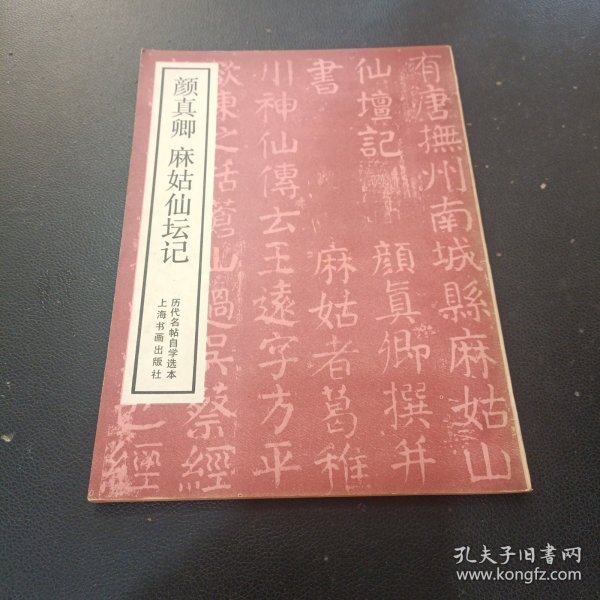 颜真卿 麻姑仙坛记
历代名帖自学选本
上海书画出版社
有唐撫州南城縣麻姑山
仙壇記 顏真卿撰并
書 麻姑者葛稚
川神仙傳云王遠字方平
欲東之括蒼山過吳蔡經
經
孔夫子旧书网
www.kongfz.com